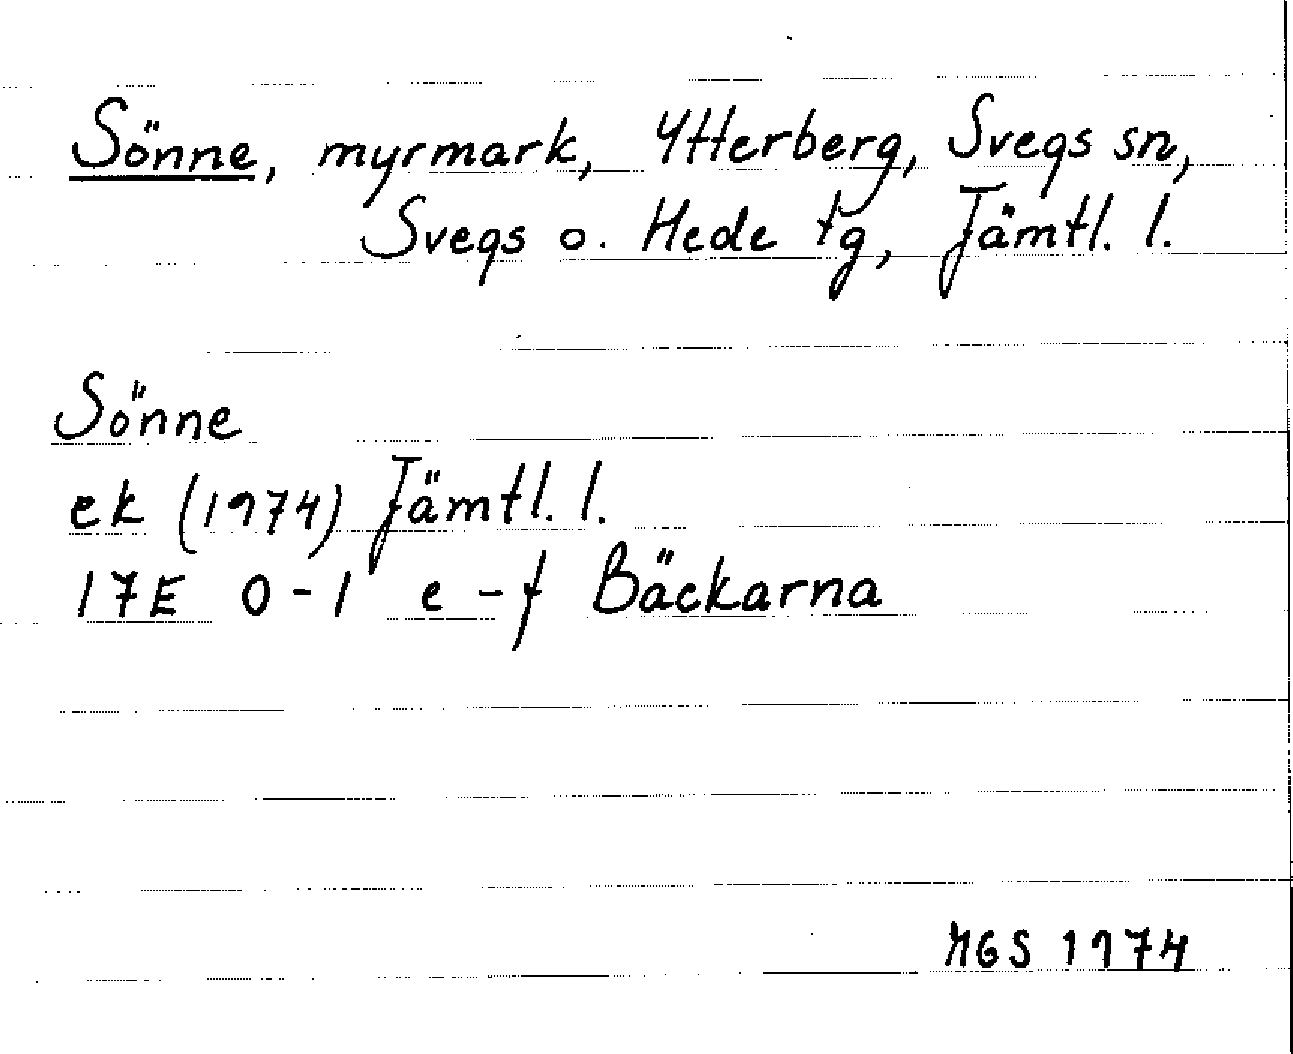 Sönne, myrmark, Ytterberg, Svegs sn,
Svegs o. Hede tg, Jämtl. l.
Sönne
ek (1974) Jämtl. l.
17E 0-1 e-f Bäckarna
MGS 1974